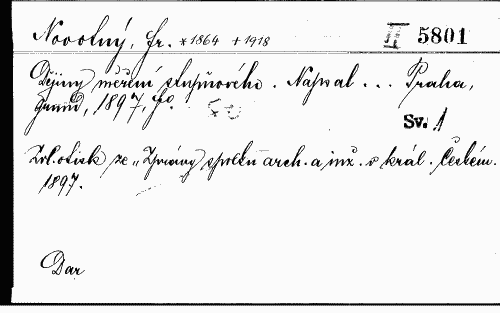 Novotný, Fr. *1864 +1918 II 5801
Dějiny měření stupňového. Napsal ... Praha,
Grund, 1897, fo.
Sv. 1
Zvl. otisk ze „Zprávy spolku arch. a inž. v král. Českém.
1897.
Dar